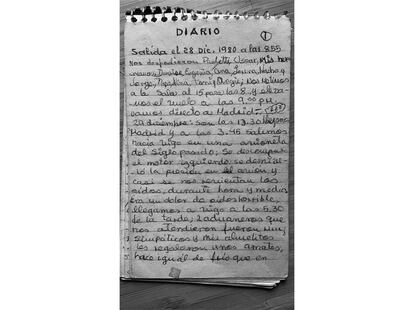 DIARIO
1
Salida el 28 Dic. 1980 a las 8.55
Nos despedieron Paulette, Oscar, Mis her
manos, Denise, Eugenia, Ana, Laura, Nacho y
Jorge,
a la Sala al 15 para las 8, y
mos el vuelo a las 9.00 PM
vamos directo a Madrid =
29 diciembre: son las 13.30
Madrid y a las 3.45 salimos
hacia Vigo en una avioneta
del siglo pasado; Se descompuso
el motor izquierdo,
la presión en el avion y
casi se nos revientan los
oídos, durante hora y media,
era un dolor de oídos horrible,
llegamos a Vigo a las 5.30
de la tarde, 2 aduaneros que
nos atendieron fueron muy
simpáticos y mis abuelitos
les regalaron unos amates,
hace igual de frío que en